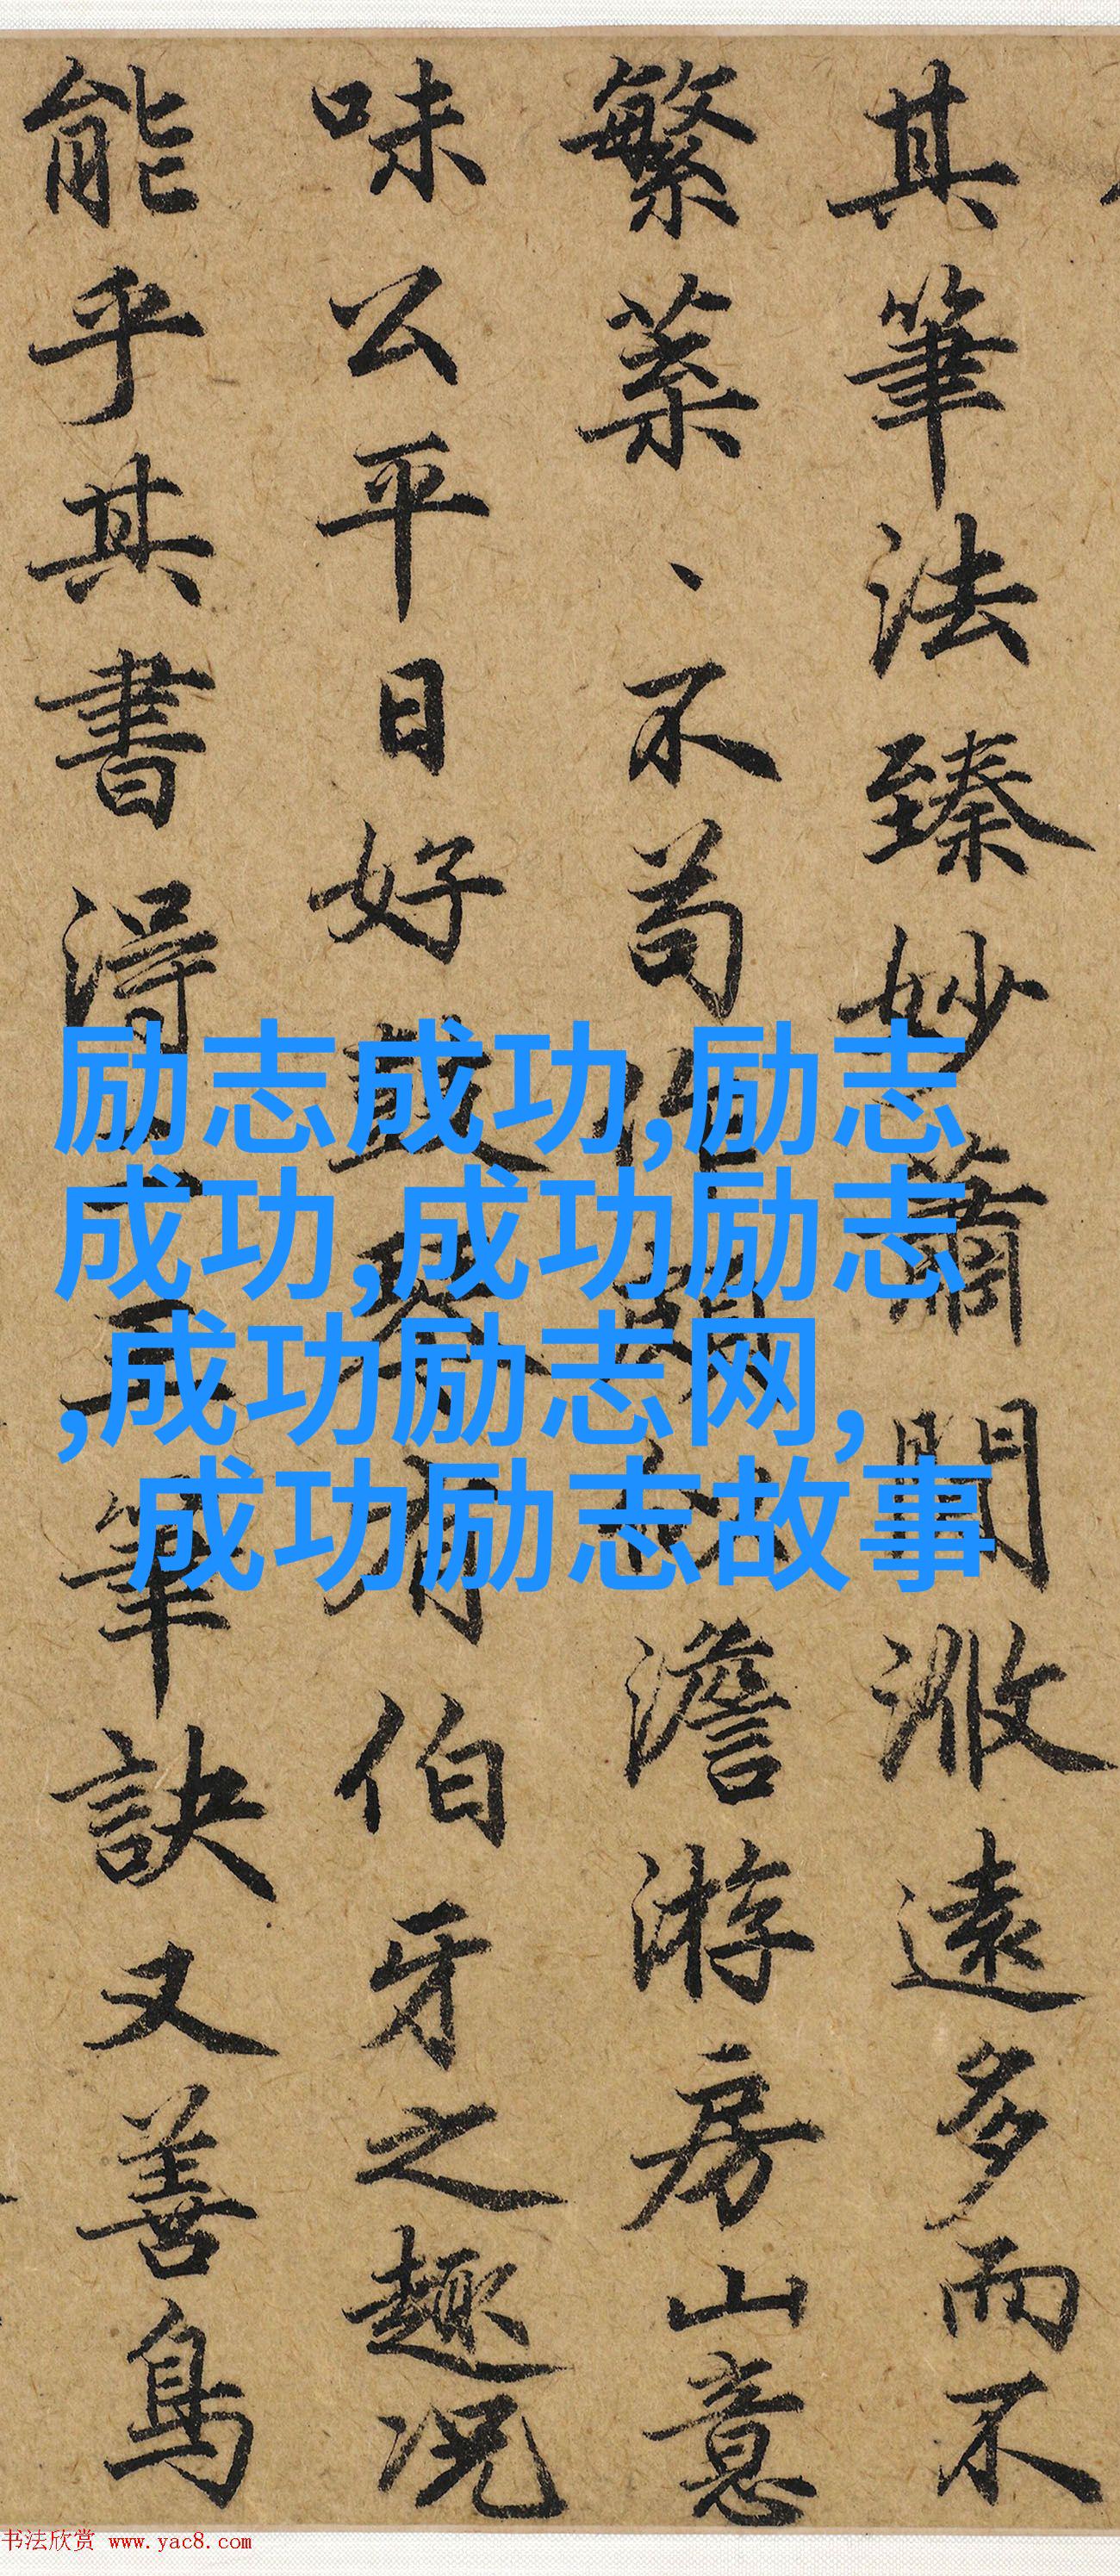 其筆法臻妙蕭閒洒遠多而不
繁菉、不苟
澹游房山意
味公平日好鼓琴有伯牙之趣况
能乎其書得
筆訣又善鳥
励志成功,励志
成功,成功励志
,成功励志网,
成功励志故事
书法欣赏 www.yac8.com